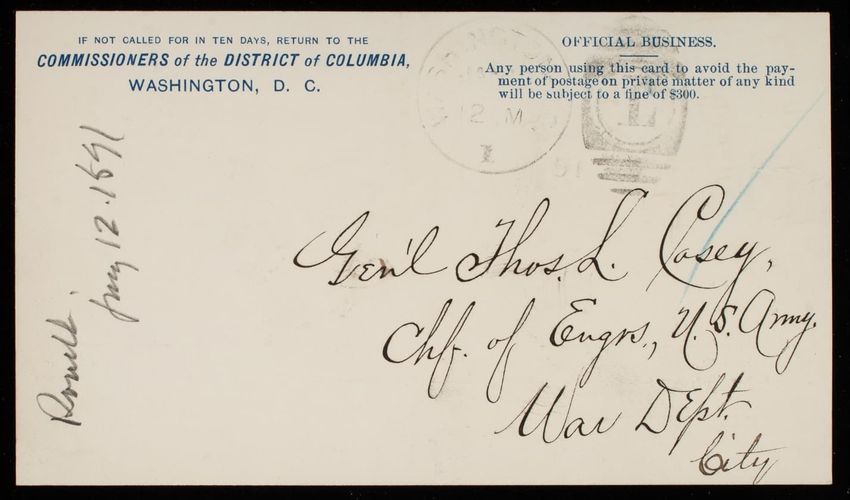 IF NOT CALLED FOR IN TEN DAYS, RETURN TO THE
COMMISSIONERS of the DISTRICT of COLUMBIA,
WASHINGTON, D. C.
OFFICIAL BUSINESS.
Any person using this card to avoid the pay-
ment of postage on private matter of any kind
will be subject to a fine of $300.
12 M
1
91
Gen'l Thos. L. Casey,
Chf. of Engrs., U. S. Army.
War Dept.
City
12. 1891